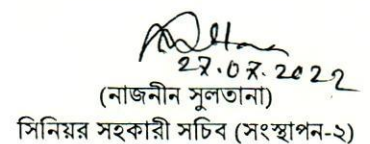 27.07.2022
(নাজনীন সুলতানা)
সিনিয়র সহকারী সচিব (সংস্থাপন-২)